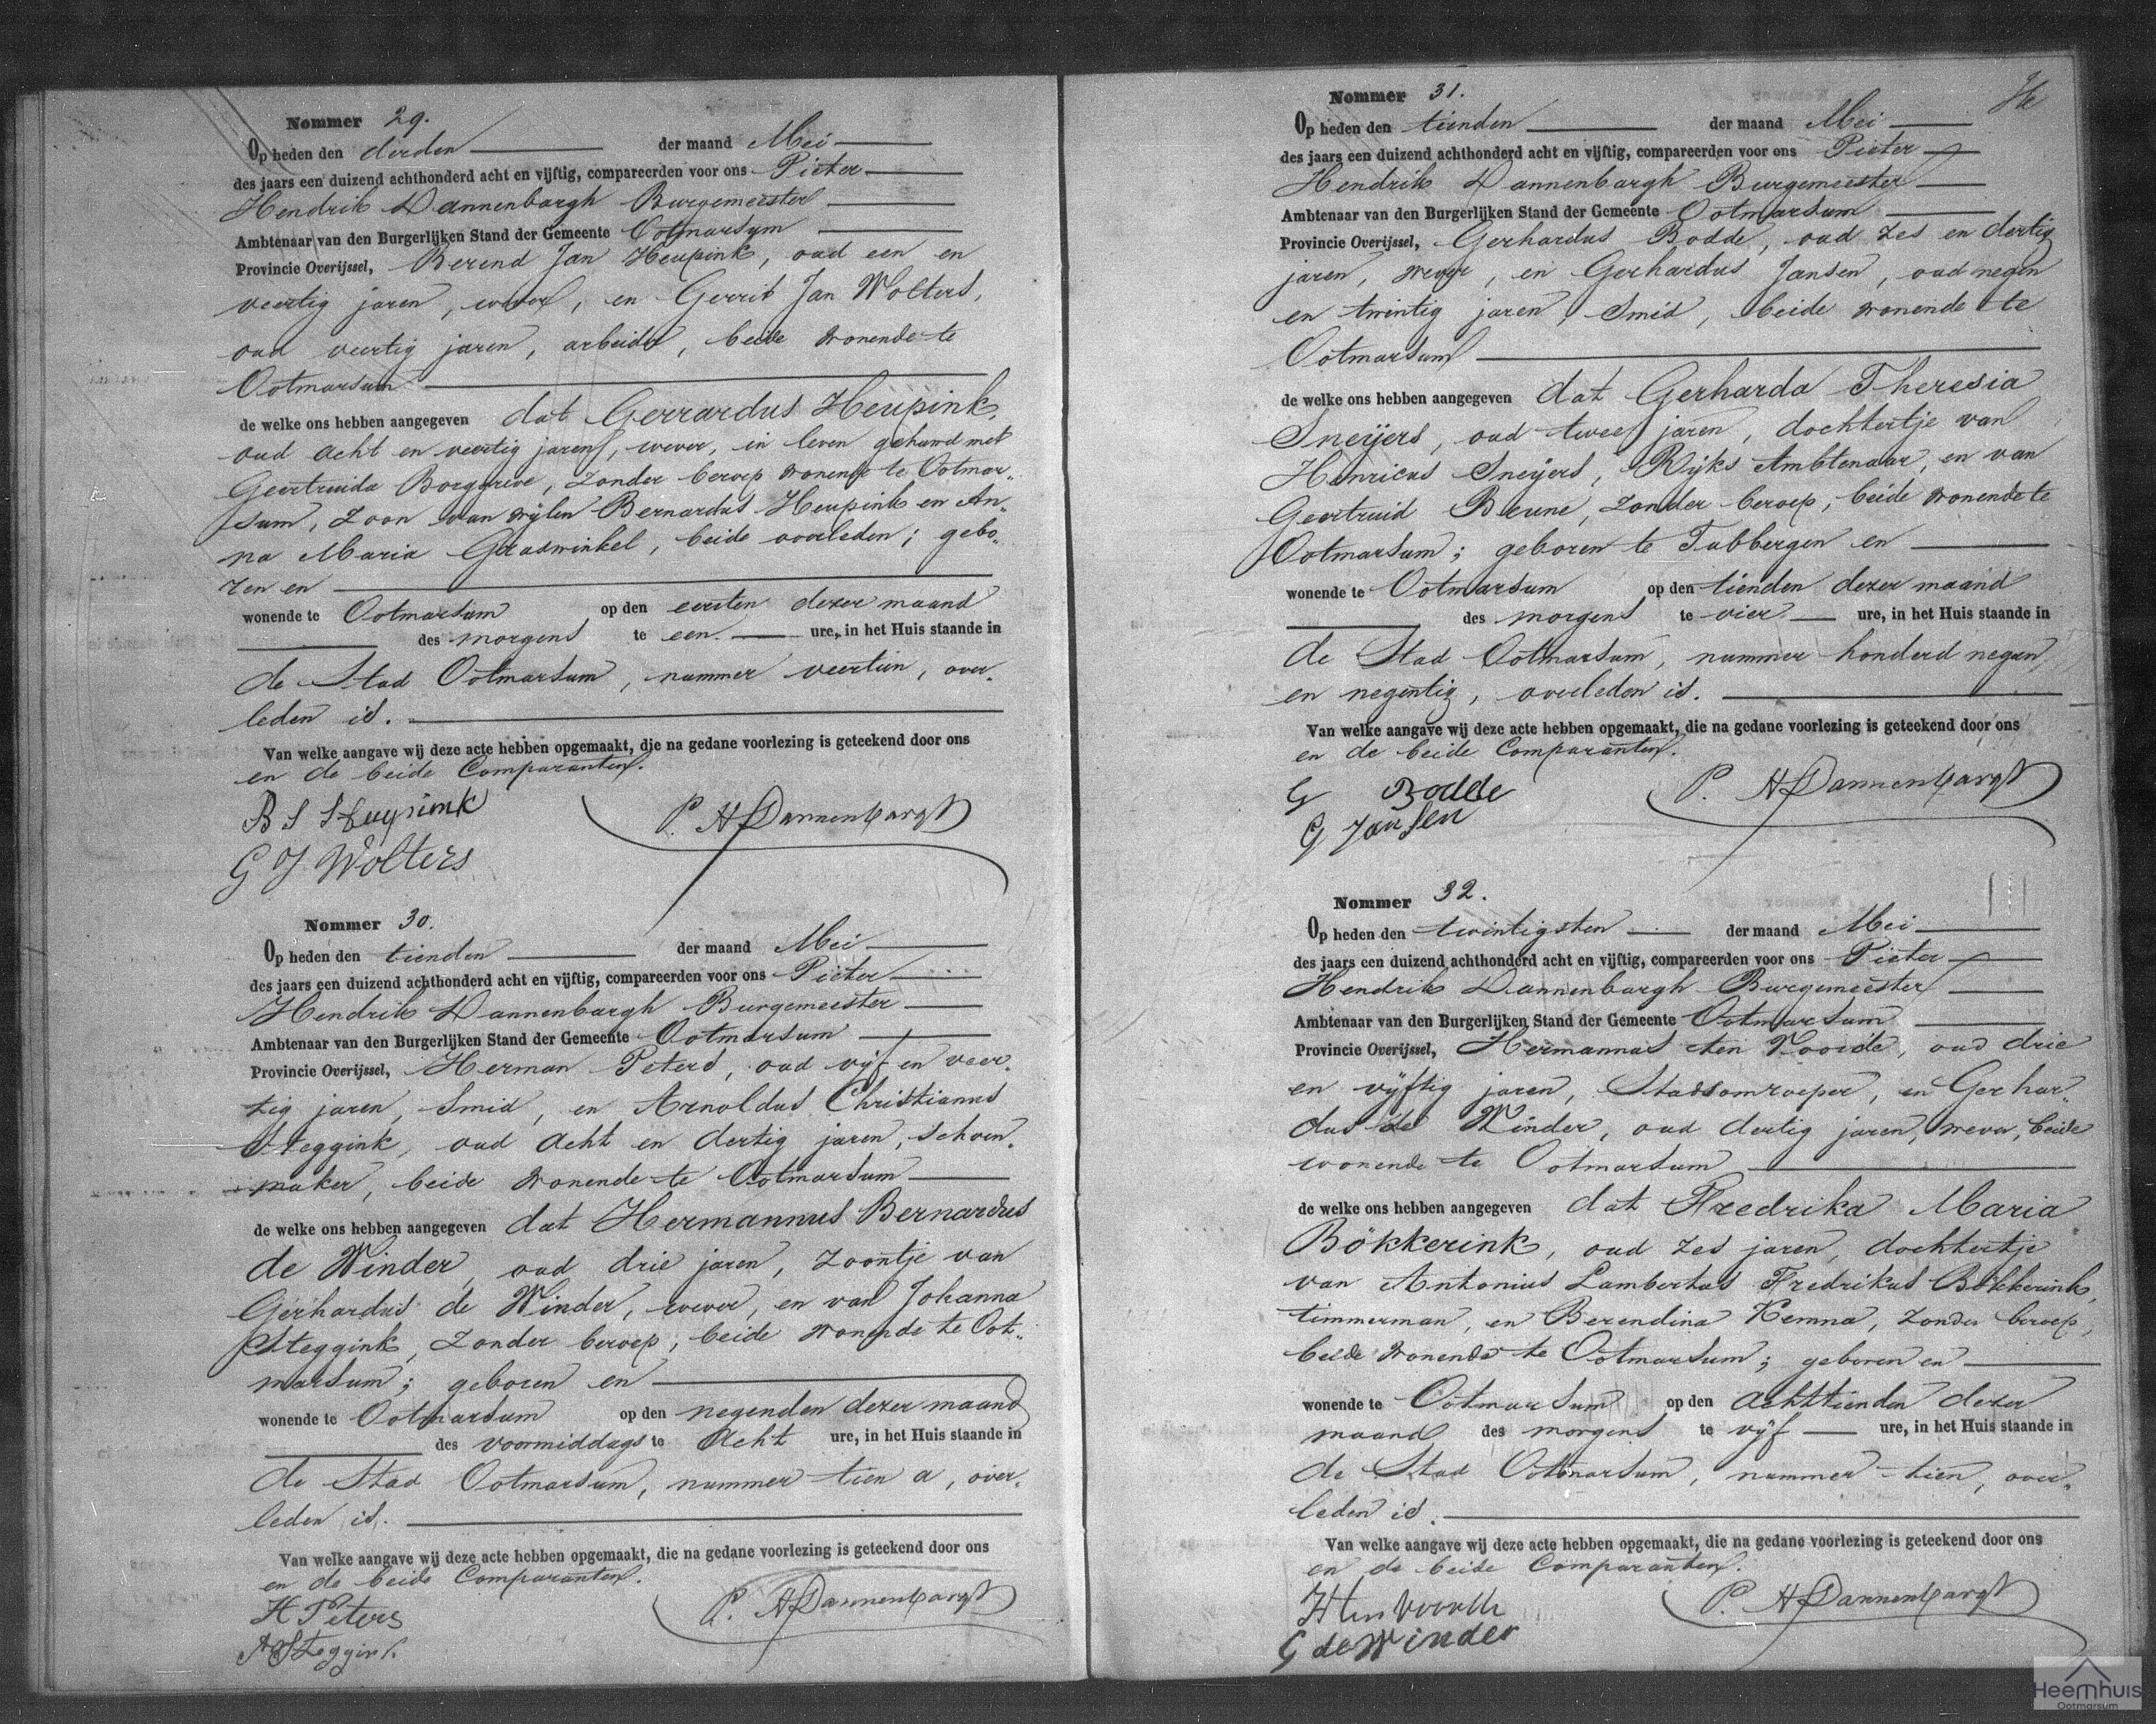 Nommer 29.
Op heden den derden der maand Mei
des jaars een duizend achthonderd acht en vijftig, compareerden voor ons Pieter
Hendrik Dannenbargh Burgemeester
Ambtenaar van den Burgerlijken Stand der Gemeente Ootmarsum
Provincie Overijssel, Berend Jan Heupink, oud een en
veertig jaren, wever, en Gerrit Jan Wolters,
oud veertig jaren, arbeider, beide wonende te
Ootmarsum
de welke ons hebben aangegeven dat Gerrardus Heupink,
oud acht en veertig jaren, wever, in leven gehuwd met
Geertruida Borggreve, zonder beroep wonende te Ootmar„
sum, zoon van wijlen Bernardus Heupink en An„
na Maria Graswinkel, beide overleden; gebo„
ren en
wonende te Ootmarsum op den eersten dezer maand
des morgens te een ure, in het Huis staande in
de Stad Ootmarsum, nummer veertien, over„
leden is.
Van welke aangave wij deze acte hebben opgemaakt, die na gedane voorlezing is geteekend door ons
en de beide Comparanten.
B J Heupink
P. H Dannenbargh
G J Wolters
Nommer 30.
Op heden den tienden der maand Mei
des jaars een duizend achthonderd acht en vijftig, compareerden voor ons Pieter
Hendrik Dannenbargh Burgemeester
Ambtenaar van den Burgerlijken Stand der Gemeente Ootmarsum
Provincie Overijssel, Herman Peters, oud vijf en veer„
tig jaren, Smid, en Arnoldus Christianus
Steggink, oud acht en dertig jaren, schoen„
maker, beide wonende te Ootmarsum
de welke ons hebben aangegeven dat Hermannus Bernardus
de Winder, oud drie jaren, zoontje van
Gerhardus de Winder, wever, en van Johanna
Steggink, zonder beroep, beide wonende te Oot„
marsum; geboren en
wonende te Ootmarsum op den negenden dezer maand
des voormiddags te acht ure, in het Huis staande in
de Stad Ootmarsum, nummer tien a, over„
leden is.
Van welke aangave wij deze acte hebben opgemaakt, die na gedane voorlezing is geteekend door ons
en de beide Comparanten.
H Peters
P. H Dannenbargh
A Steggink
Nommer 31.
Op heden den tienden der maand Mei
des jaars een duizend achthonderd acht en vijftig, compareerden voor ons Pieter
Hendrik Dannenbargh Burgemeester
Ambtenaar van den Burgerlijken Stand der Gemeente Ootmarsum
Provincie Overijssel, Gerhardus Bodde, oud zes en dertig
jaren, wever, en Gerhardus Jansen, oud negen
en twintig jaren, Smid, beide wonende te
Ootmarsum
de welke ons hebben aangegeven dat Gerharda Theresia
Sneijers, oud twee jaren, dochtertje van
Henricus Sneijers, Rijks Ambtenaar, en van
Geertruid Beune, zonder beroep, beide wonende te
Ootmarsum; geboren te Tubbergen en
wonende te Ootmarsum op den tienden dezer maand
des morgens te vier ure, in het Huis staande in
de Stad Ootmarsum, nummer honderd negen
en negentig, overleden is.
Van welke aangave wij deze acte hebben opgemaakt, die na gedane voorlezing is geteekend door ons
en de beide Comparanten.
G Bodde
P. H Dannenbargh
G Jansen
Nommer 32.
Op heden den twintigsten der maand Mei
des jaars een duizend achthonderd acht en vijftig, compareerden voor ons Pieter
Hendrik Dannenbargh Burgemeester
Ambtenaar van den Burgerlijken Stand der Gemeente Ootmarsum
Provincie Overijssel, Hermannus ten Voorde, oud drie
en vijftig jaren, Stadsomroeper, en Gerhar„
dus de Winder, oud dertig jaren, wever, beide
wonende te Ootmarsum
de welke ons hebben aangegeven dat Fredrika Maria
Bökkerink, oud zes jaren, dochtertje
van Antonius Lambertus Fredrikus Bökkerink,
timmerman, en Berendina Kemna, zonder beroep,
beide wonende te Ootmarsum; geboren en
wonende te Ootmarsum op den achttienden dezer
maand des morgens te vijf ure, in het Huis staande in
de Stad Ootmarsum, nummer tien, over„
leden is.
Van welke aangave wij deze acte hebben opgemaakt, die na gedane voorlezing is geteekend door ons
en de beide Comparanten.
H ten Voorde
P. H Dannenbargh
G de Winder
Heemhuis
Ootmarsum